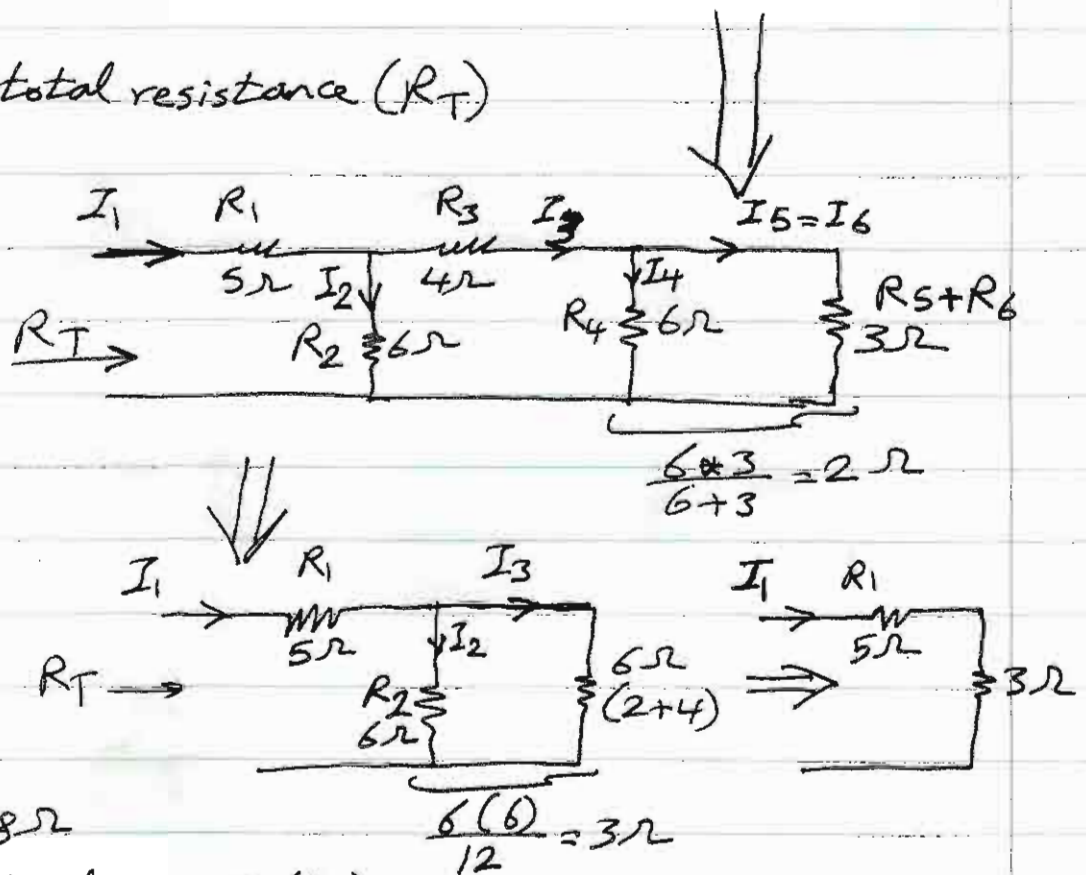 total resistance (R_T)
I_1 R_1 R_3 I_3 I_5 = I_6
5Ω I_2 4Ω I_4
R_T R_2 6Ω R_4 6Ω R_5 + R_6
3Ω
6 * 3 / 6 + 3 = 2 Ω
I_1 R_1 I_3 I_1 R_1
5Ω I_2 5Ω
R_T R_2 6Ω 6Ω (2+4) 3Ω
8Ω
6 (6) / 12 = 3Ω